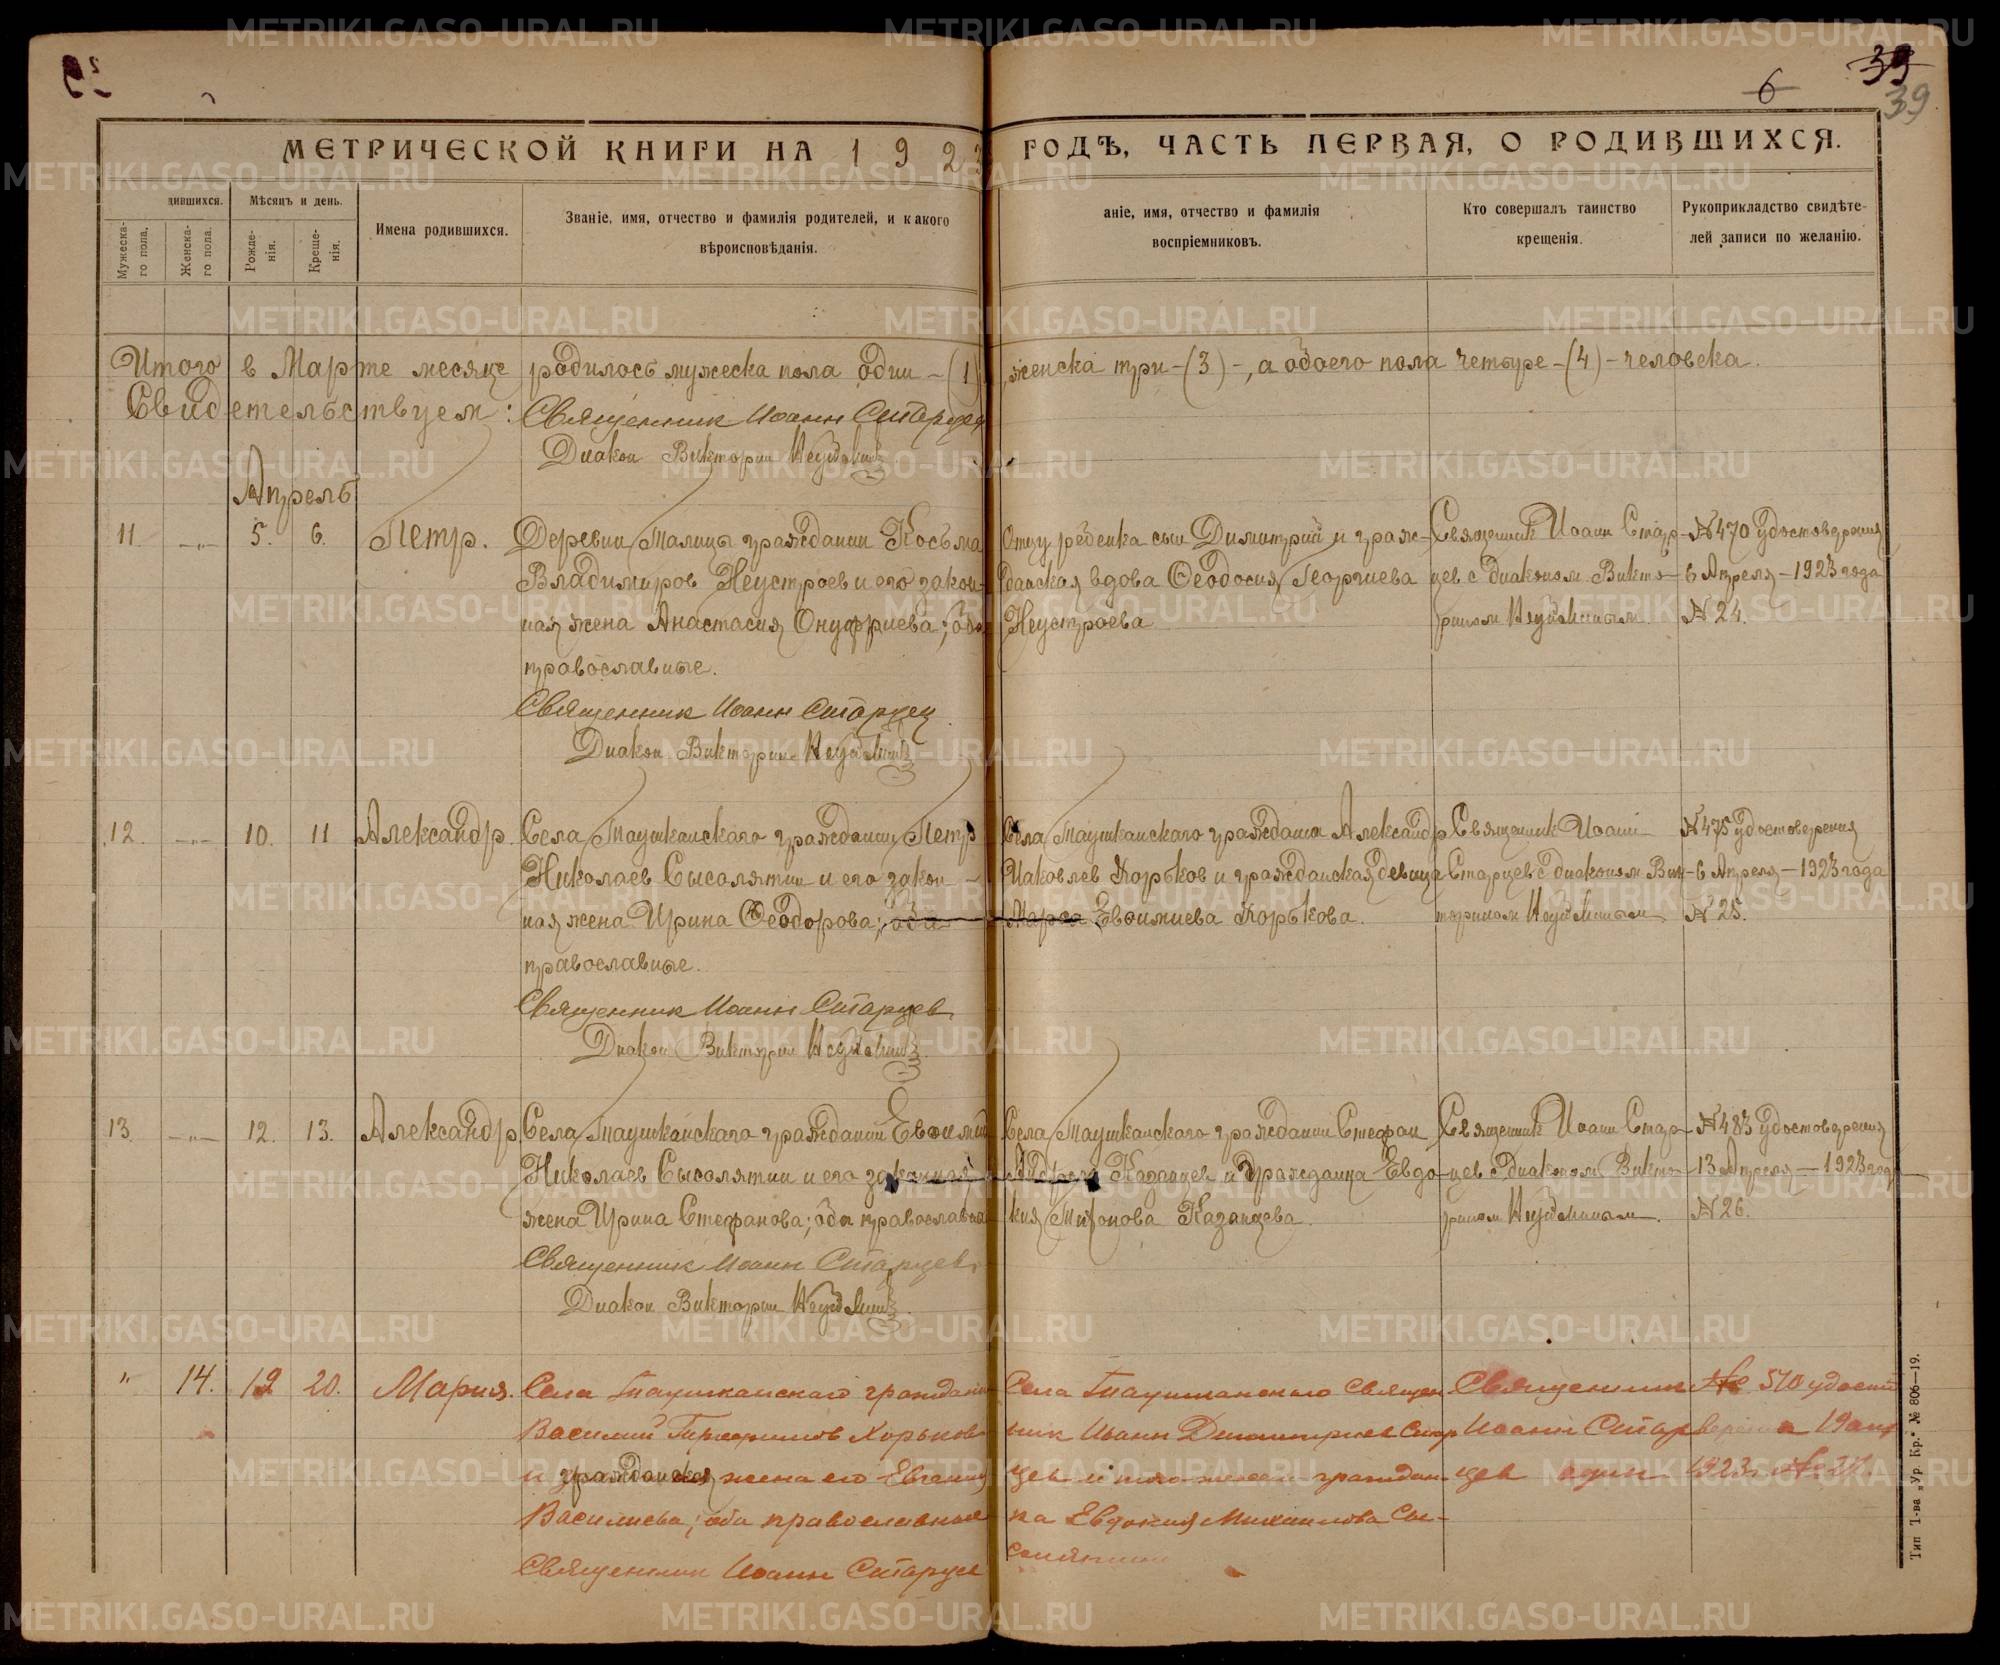 6
39
39
МЕТРИЧЕСКОЙ КНИГИ НА 1923 ГОДЪ, ЧАСТЬ ПЕРВАЯ, О РОДИВШИХСЯ.
дившихся.
Мѣсяцъ и день.
Мужеска-го пола.
Женска-го пола.
Рожде-нія.
Креще-нія.
Имена родившихся.
Званіе, имя, отчество и фамилія родителей, и какого
вѣроисповѣданія.
аніе, имя, отчество и фамилія
воспріемниковъ.
Кто совершалъ таинство
крещенія.
Рукоприкладство свидѣте-
лей записи по желанію.
Итого в Марте месяце родилось мужеска пола один - (1), женска три - (3) -, а обоего пола четыре - (4) - человека.
Свидетельствуем: Священник Иоанн Старцев
Диакон Викторин Неудачин
Апрель
11. -„- 5. 6. Петр.
Деревни Талицы гражданин Косьма
Владимиров Неустроев и его закон-
ная жена Анастасия Онуфриева; оба
православные.
Священник Иоанн Старцев
Диакон Викторин
Отцу ребенка сын Димитрий и граж-
данская вдова Феодосия Георгиева
Неустроева
Священник Иоанн Стар-
цев с диаконом Викто-
рином
№ 470 удостоверения
6 Апреля - 1923 года
№ 24.
12. -„- 10. 11 Александр.
Села Таушканского гражданин Петр
Николаев Сысолятин и его закон-
ная жена Ирина Феодорова; оба
православные.
Священник Иоанн Старцев
Диакон Викторин
Села Таушканского гражданин Александр
Иаковлев Хорьков и гражданская девица
Евфимиева Хорькова.
Священник Иоанн
Старцев с диаконом Вик-
торином
№ 475 удостоверения
6 Апреля - 1923 года
№ 25.
13. -„- 12. 13. Александр.
Села Таушканского гражданин Евфимий
Николаев Сысолятин и его законная
жена Ирина Стефанова; оба православные
Священник Иоанн Старцев
Диакон Викторин
Села Таушканского гражданин Стефан
Казанцев и гражданка Евдо-
кия Казанцева.
Священник Иоанн Стар-
цев с диаконом Викто-
рином
№ 483 удостоверения
13 Апреля - 1923 год
№ 26.
" 14. 19 20. Мария.
Села Таушканскаго гражданин
Василий Хорьков
и гражданская жена его Евгения
Васильева; оба православные
Священник Иоанн Старцев
Села Таушканскаго священ
ник Иоанн Димитриев Стар
цев и граждан-
ка Евдокия Михаилова Сы-
солятина
Священник
Иоанн Стар
цев один
№ 510 удосто
верения 19 апр
1923 г № 27.
Тип. Т-ва „Ур. Кр." № 806—19.
METRIKI.GASO-URAL.RU